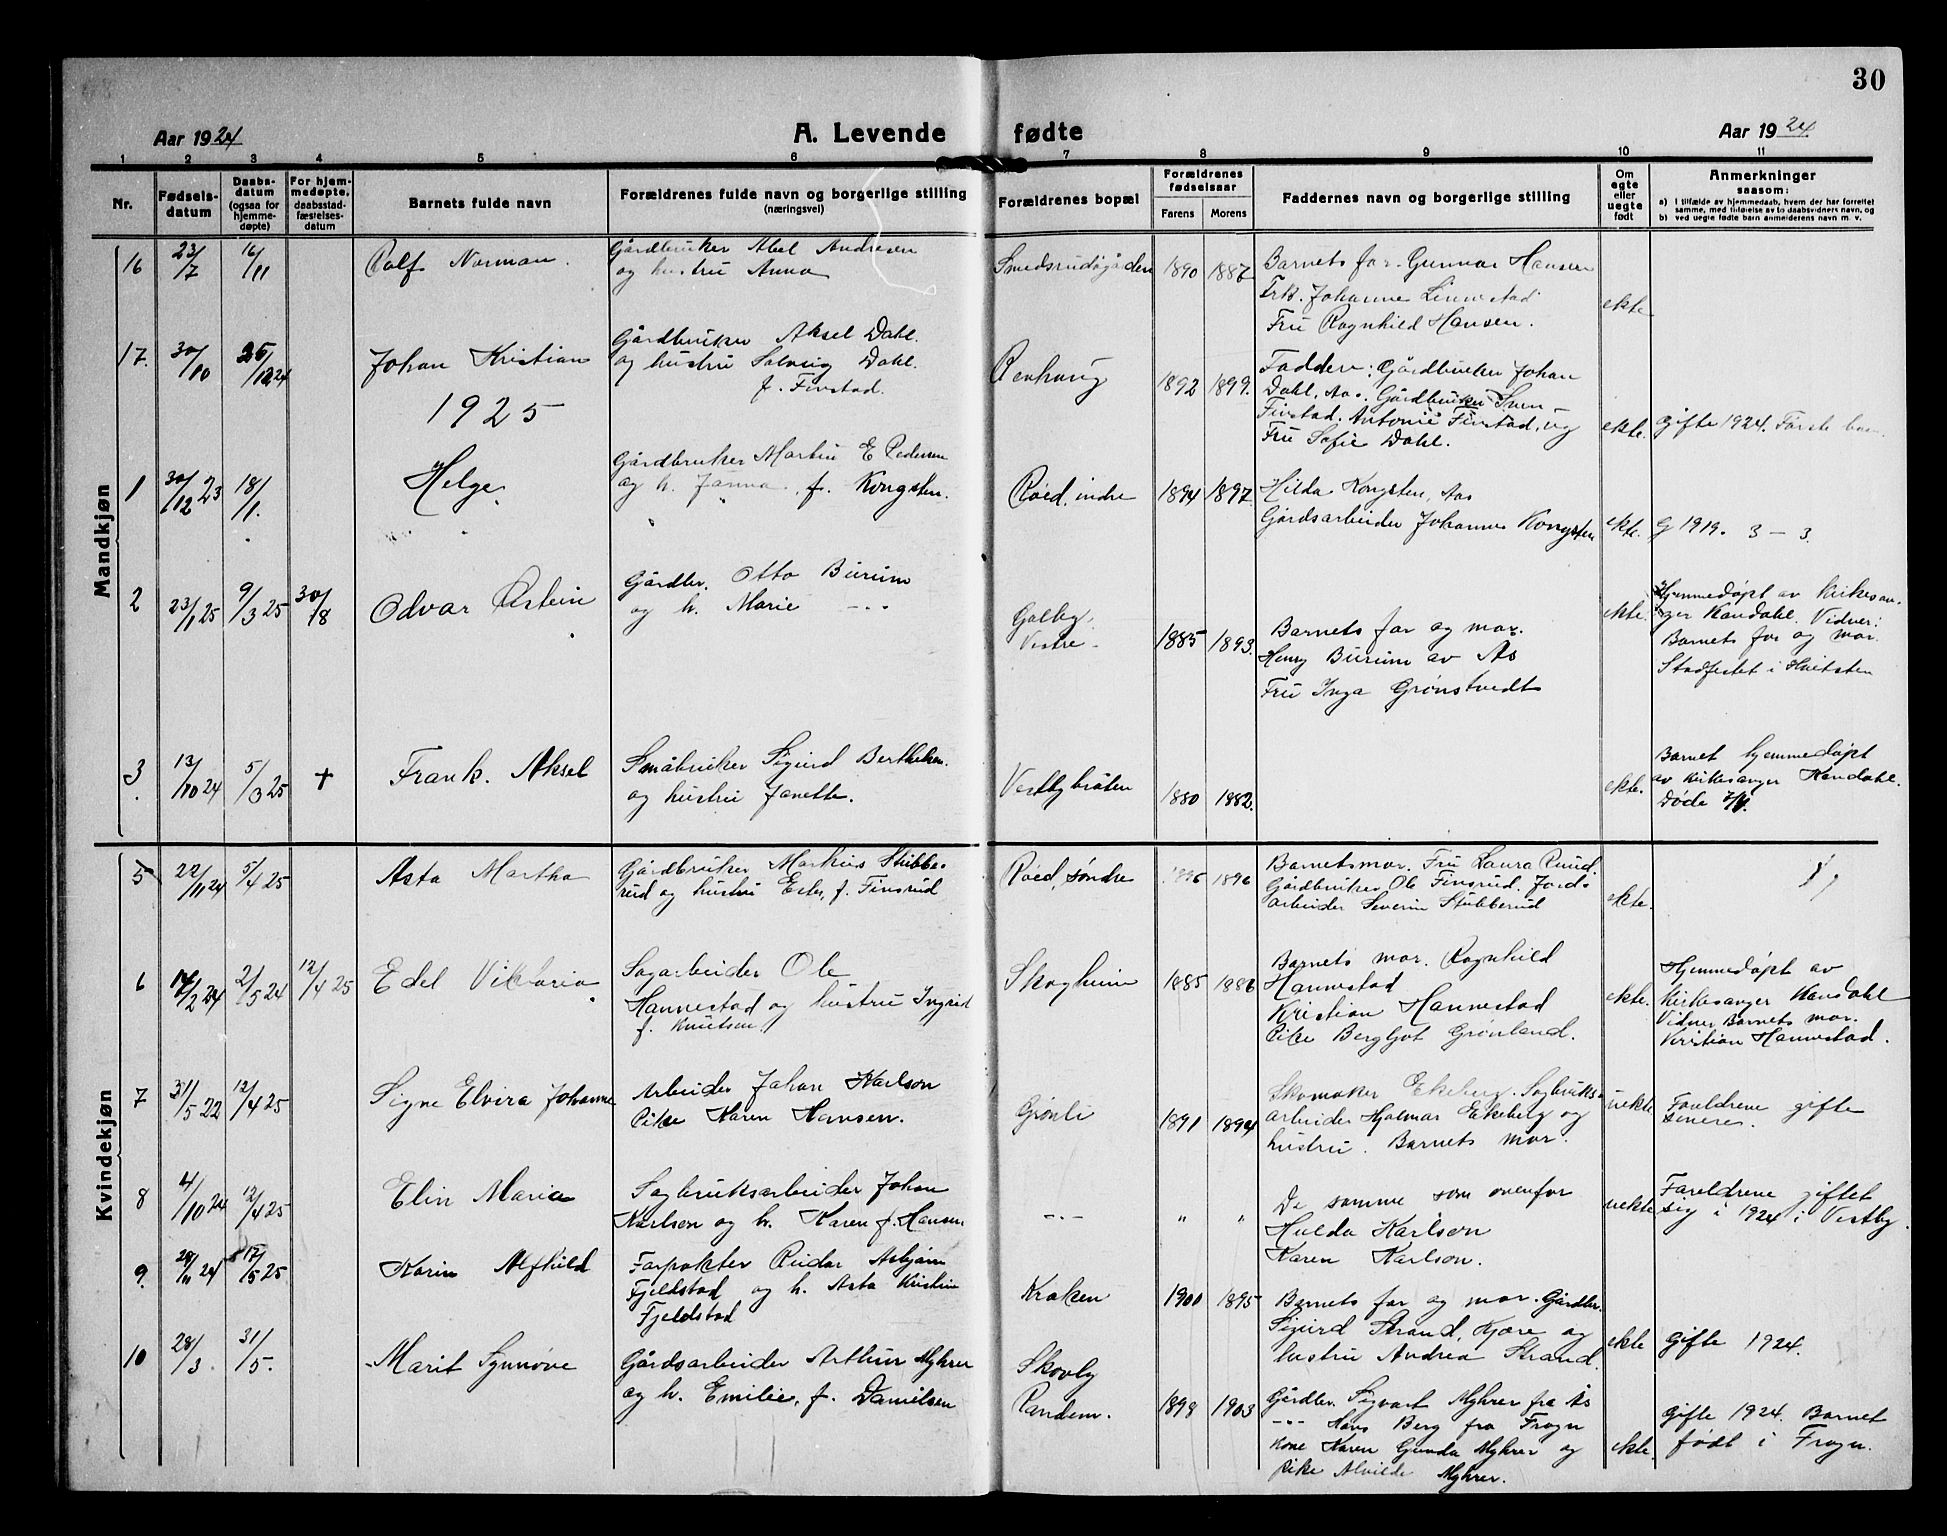 30
Aar 1924
A. Levende fødte
Aar 1924
1 2 3 4 5 6 7 8 9 10 11
Nr.
Fødsels-
datum
Daabs-
datum
(ogsaa for
hjemme-
døpte)
For hjem-
medøpte,
daabsstad-
fæstelses-
datum
Barnets fulde navn
Forældrenes fulde navn og borgerlige stilling
(næringsvei)
Forældrenes bopæl
Forældrenes
fødselsaar
Farens Morens
Faddernes navn og borgerlige stilling
Om
egte
eller
uegte
født
Anmerkninger
saasom:
a) I tilfælde av hjemmedaab, hvem der har forrettet
samme, med tilføielse av to daabsvidners navn, og
b) ved uegte fødte barn anmelderens navn m. v.
Mandkjøn
16 23/7 16/11
Rolf Norman.
Gårdbruker Abel Andresen
og hustru Anna
Smedsrudgården
1890 1887
Barnets far. Gunnar Hansen
Frk. Johanne Linnestad
Fru Ragnhild Hansen.
ekte
17. 30/10 26/12 24
Johan Kristian
Gårdbruker Aksel Dahl.
og hustru Solveig Dahl.
f. Finstad.
Renhaug
1892 1899.
Faddere: Gårdbruker Johan
Dahl, Aas. Gårdbruker Sven
Finstad. Antonie Finstad, og
Fru Sofie Dahl.
ekte.
gifte 1924. Første barn.
1925
1 30/12 23 18/1.
Helge.
Gårdbruker Martin E Pedersen
og h. Janna, f. Kongsten.
Røed, indre
1894 1897.
Hilda Kongsten, Aas
Gårdsarbeider Johannes Kongsten
ekte.
g 1919. 3 — 3.
2 23/1 25 9/3 25 30/8
Odvar Østein
Gårdbr. Otto Burum
og h. Marie -"-
Galby,
Vestre.
1885 1893.
Barnets far og mor.
Henry Burum av As
Fru Inga Grønstvedt
ekte.
Hjemmedøpt av kirkesan-
ger Kandahl. Vidner:
Barnets far og mor.
Stadfestet i Hvitsten
3 13/10 24 5/3 25 +
Frank. Aksel
Småbruker Sigurd Berthelsen.
og hustru Janette.
Vestbybråten
1880 1882.
ekte.
Barnet hjemmedøpt
av kirkesanger Kandahl.
Døde
Kvindekjøn
5 22/11 24 5/4 25
Asta Martha
Gårdbruker Markus Stubbe-
rud og hustru Ester, f. Finsrud
Røed, søndre
1896
Barnets mor. Fru Laura Ruud.
Gårdbruker Ole Finsrud. Jord-
arbeider Severin Stubberud
ekte.
6 14/2 24 2/5 24 12/4 25
Edel Viktoria
Sagarbeider Ole
Hannestad og hustru Ingrid
f. Knutsen
Skogheim
1885 1886
Barnets mor. Ragnhild
Hannestad
Kristian Hannestad
Pike Bergljot Grønland.
ekte.
Hjemmedøpt av
Kirkesanger Kandahl
Vidner Barnets mor.
Kristian Hannestad.
7 31/5 22 12/4 25
Signe Elvira Johanne
Arbeider Johan Karlson
Pike Karen Hansen.
Grønli
1891 1894
Skomaker Ekeberg. Sagbruks-
arbeider Hjalmar Ekeberg og
hustru. Barnets mor.
uekte
Foreldrene gifte
senere.
8 4/10 24 12/4 25
Elin Maria
Sagbruksarbeider Johan
Karlson og h. Karen f. Hansen
-"-
" "
De samme som ovenfor
Hulda Karlson
Karen Karlson.
uekte
Foreldrene giftet
sig i 1924 i Vestby.
9. 28/11 24 17/5 25
Karin Alfhild
Forpakter Reidar Asbjørn
Fjeldstad og h. Asta Kristine
Fjeldstad
Kroken
1900 1895
Barnets far og mor. Gårdbr.
Sigurd Strand, Kjære og
hustru Andrea Strand.
ekte
gifte 1924.
10 28/3. 31/5.
Marit Synnøve
Gårdsarbeider Arthur Myhrer
og h. Emilie, f. Danielsen
Skovly
Randem.
1898 1903
Gårdbr. Sigvart Myhrer fra Ås
-"- Hans Berg fra Frogn
Kone Karen Gunda Myhrer og
Pike Alvilde Myhrer.
ekte.
gifte 1924. Barnet
født i Frogn.